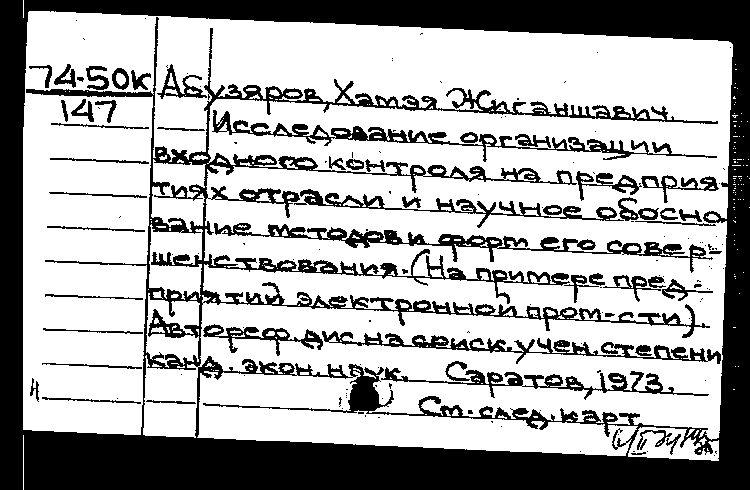 74-50к
147
Абузяров, Хамзя Жиганшавич.
Исследование организации
входного контроля на предприя-
тиях отрасли и научное обосно-
вание методов и форм его совер-
шенствования. (На примере пред-
приятий электронной пром-сти).
Автореф. дис. на соиск. учен. степени
канд. экон. наук. Саратов, 1973.
См. след. карт.